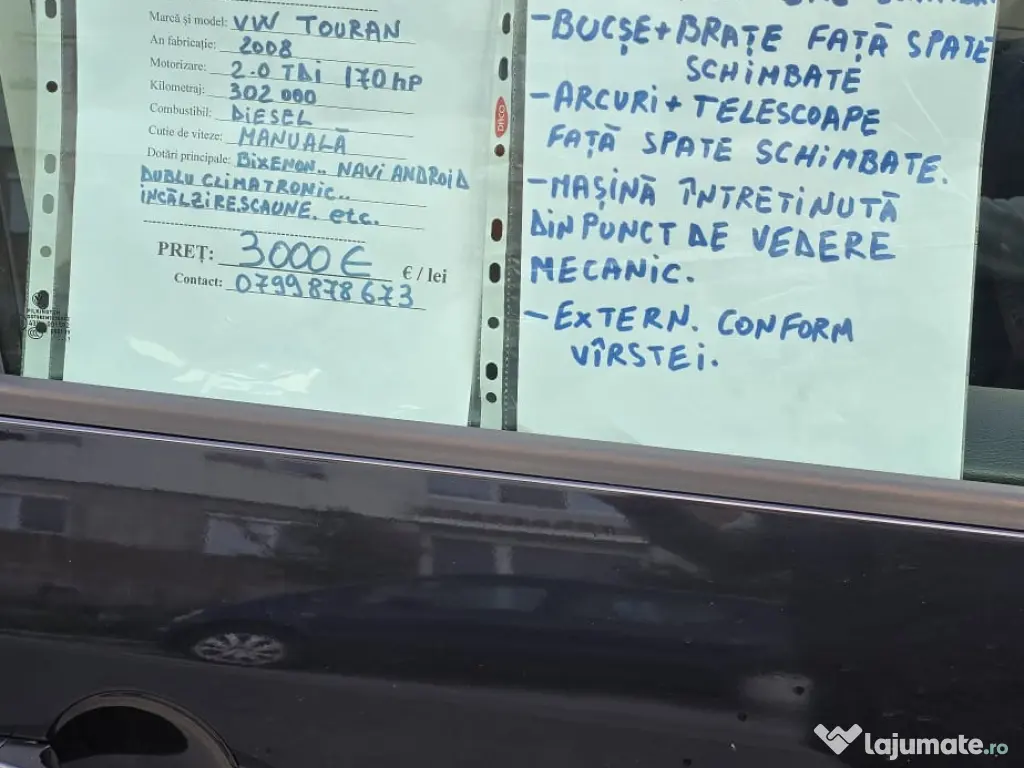 Marcă și model: VW TOURAN
An fabricație: 2008
Motorizare: 2.0 TDi 170 HP
Kilometraj: 302 000
Combustibil: DiESEL
Cutie de viteze: MANUALĂ
Dotări principale: BiXENON.. NAVi ANDROiD
DUBLU CLiMATRONiC..
ÎNCĂLZiRE SCAUNE. etc.
PREȚ: 3000 € € / lei
Contact: 0799 878 673
- BUCȘE + BRAȚE FAȚĂ SPATE
SCHiMBATE
- ARCURi + TELESCOAPE
FAȚĂ SPATE SCHiMBATE.
- MAȘiNĂ ÎNTREȚiNUTĂ
DiN PUNCT DE VEDERE
MECANiC.
- EXTERN. CONFORM
VÎRSTEi.
DACO
PILKINGTON
lajumate.ro